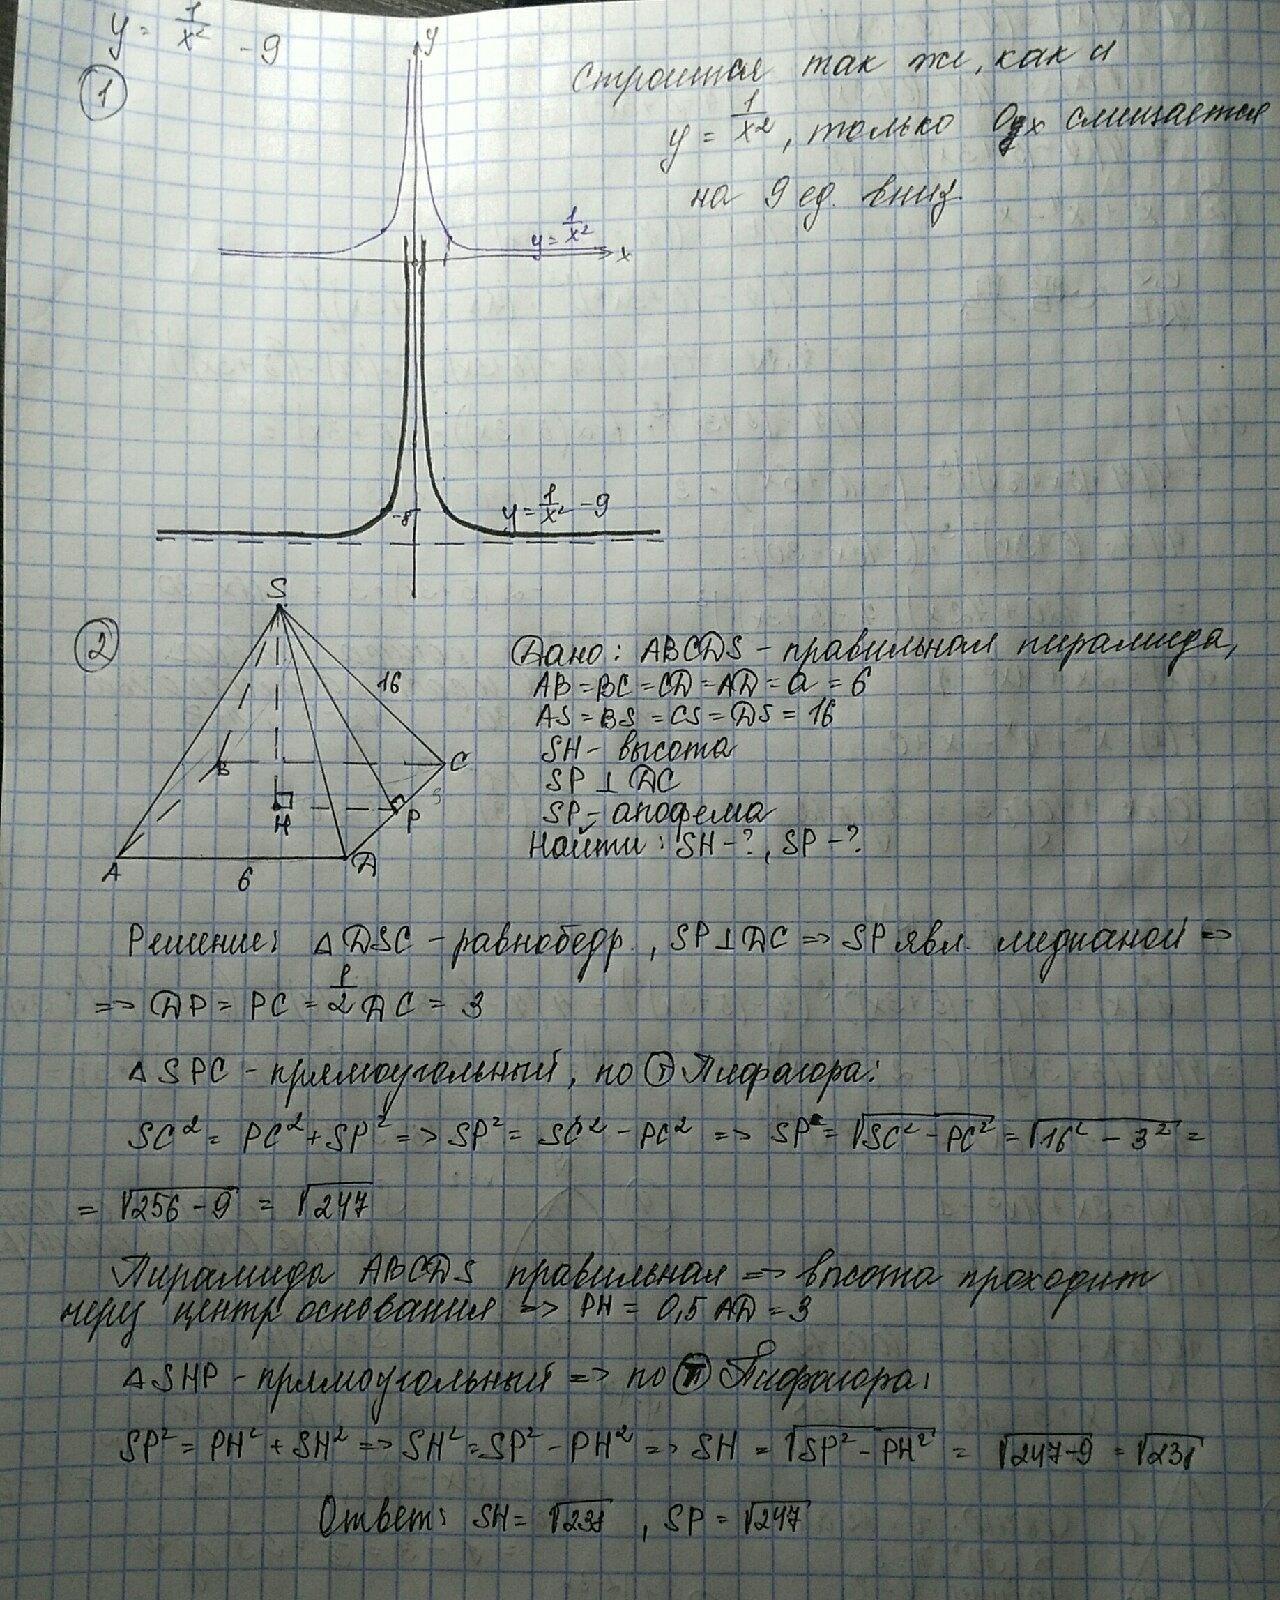 y = 1/x² - 9
1
y
Строится так же, как и
y = 1/x², только Ох смещается
на 9 ед. вниз.
y = 1/x²
x
-8
y = 1/x² - 9
2
S
16
B
C
H
P
A
6
D
Дано: ABCDS - правильная пирамида,
AB = BC = CD = AD = a = 6
AS = BS = CS = DS = 16
SH - высота
SP ⊥ DC
SP - апофема
Найти: SH - ?, SP - ?
Решение: △ DSC - равнобедр., SP ⊥ DC => SP явл. медианой =>
=> DP = PC = 1/2 DC = 3
△ SPC - прямоугольный, по Т Пифагора:
SC² = PC² + SP² => SP² = SC² - PC² => SP = √(SC² - PC²) = √(16² - 3²) =
= √(256 - 9) = √247
Пирамида ABCDS правильная => высота проходит
через центр основания => PH = 0,5 AD = 3
△ SHP - прямоугольный => по Т Пифагора:
SP² = PH² + SH² => SH² = SP² - PH² => SH = √(SP² - PH²) = √(247 - 9) = √238
Ответ: SH = √238, SP = √247